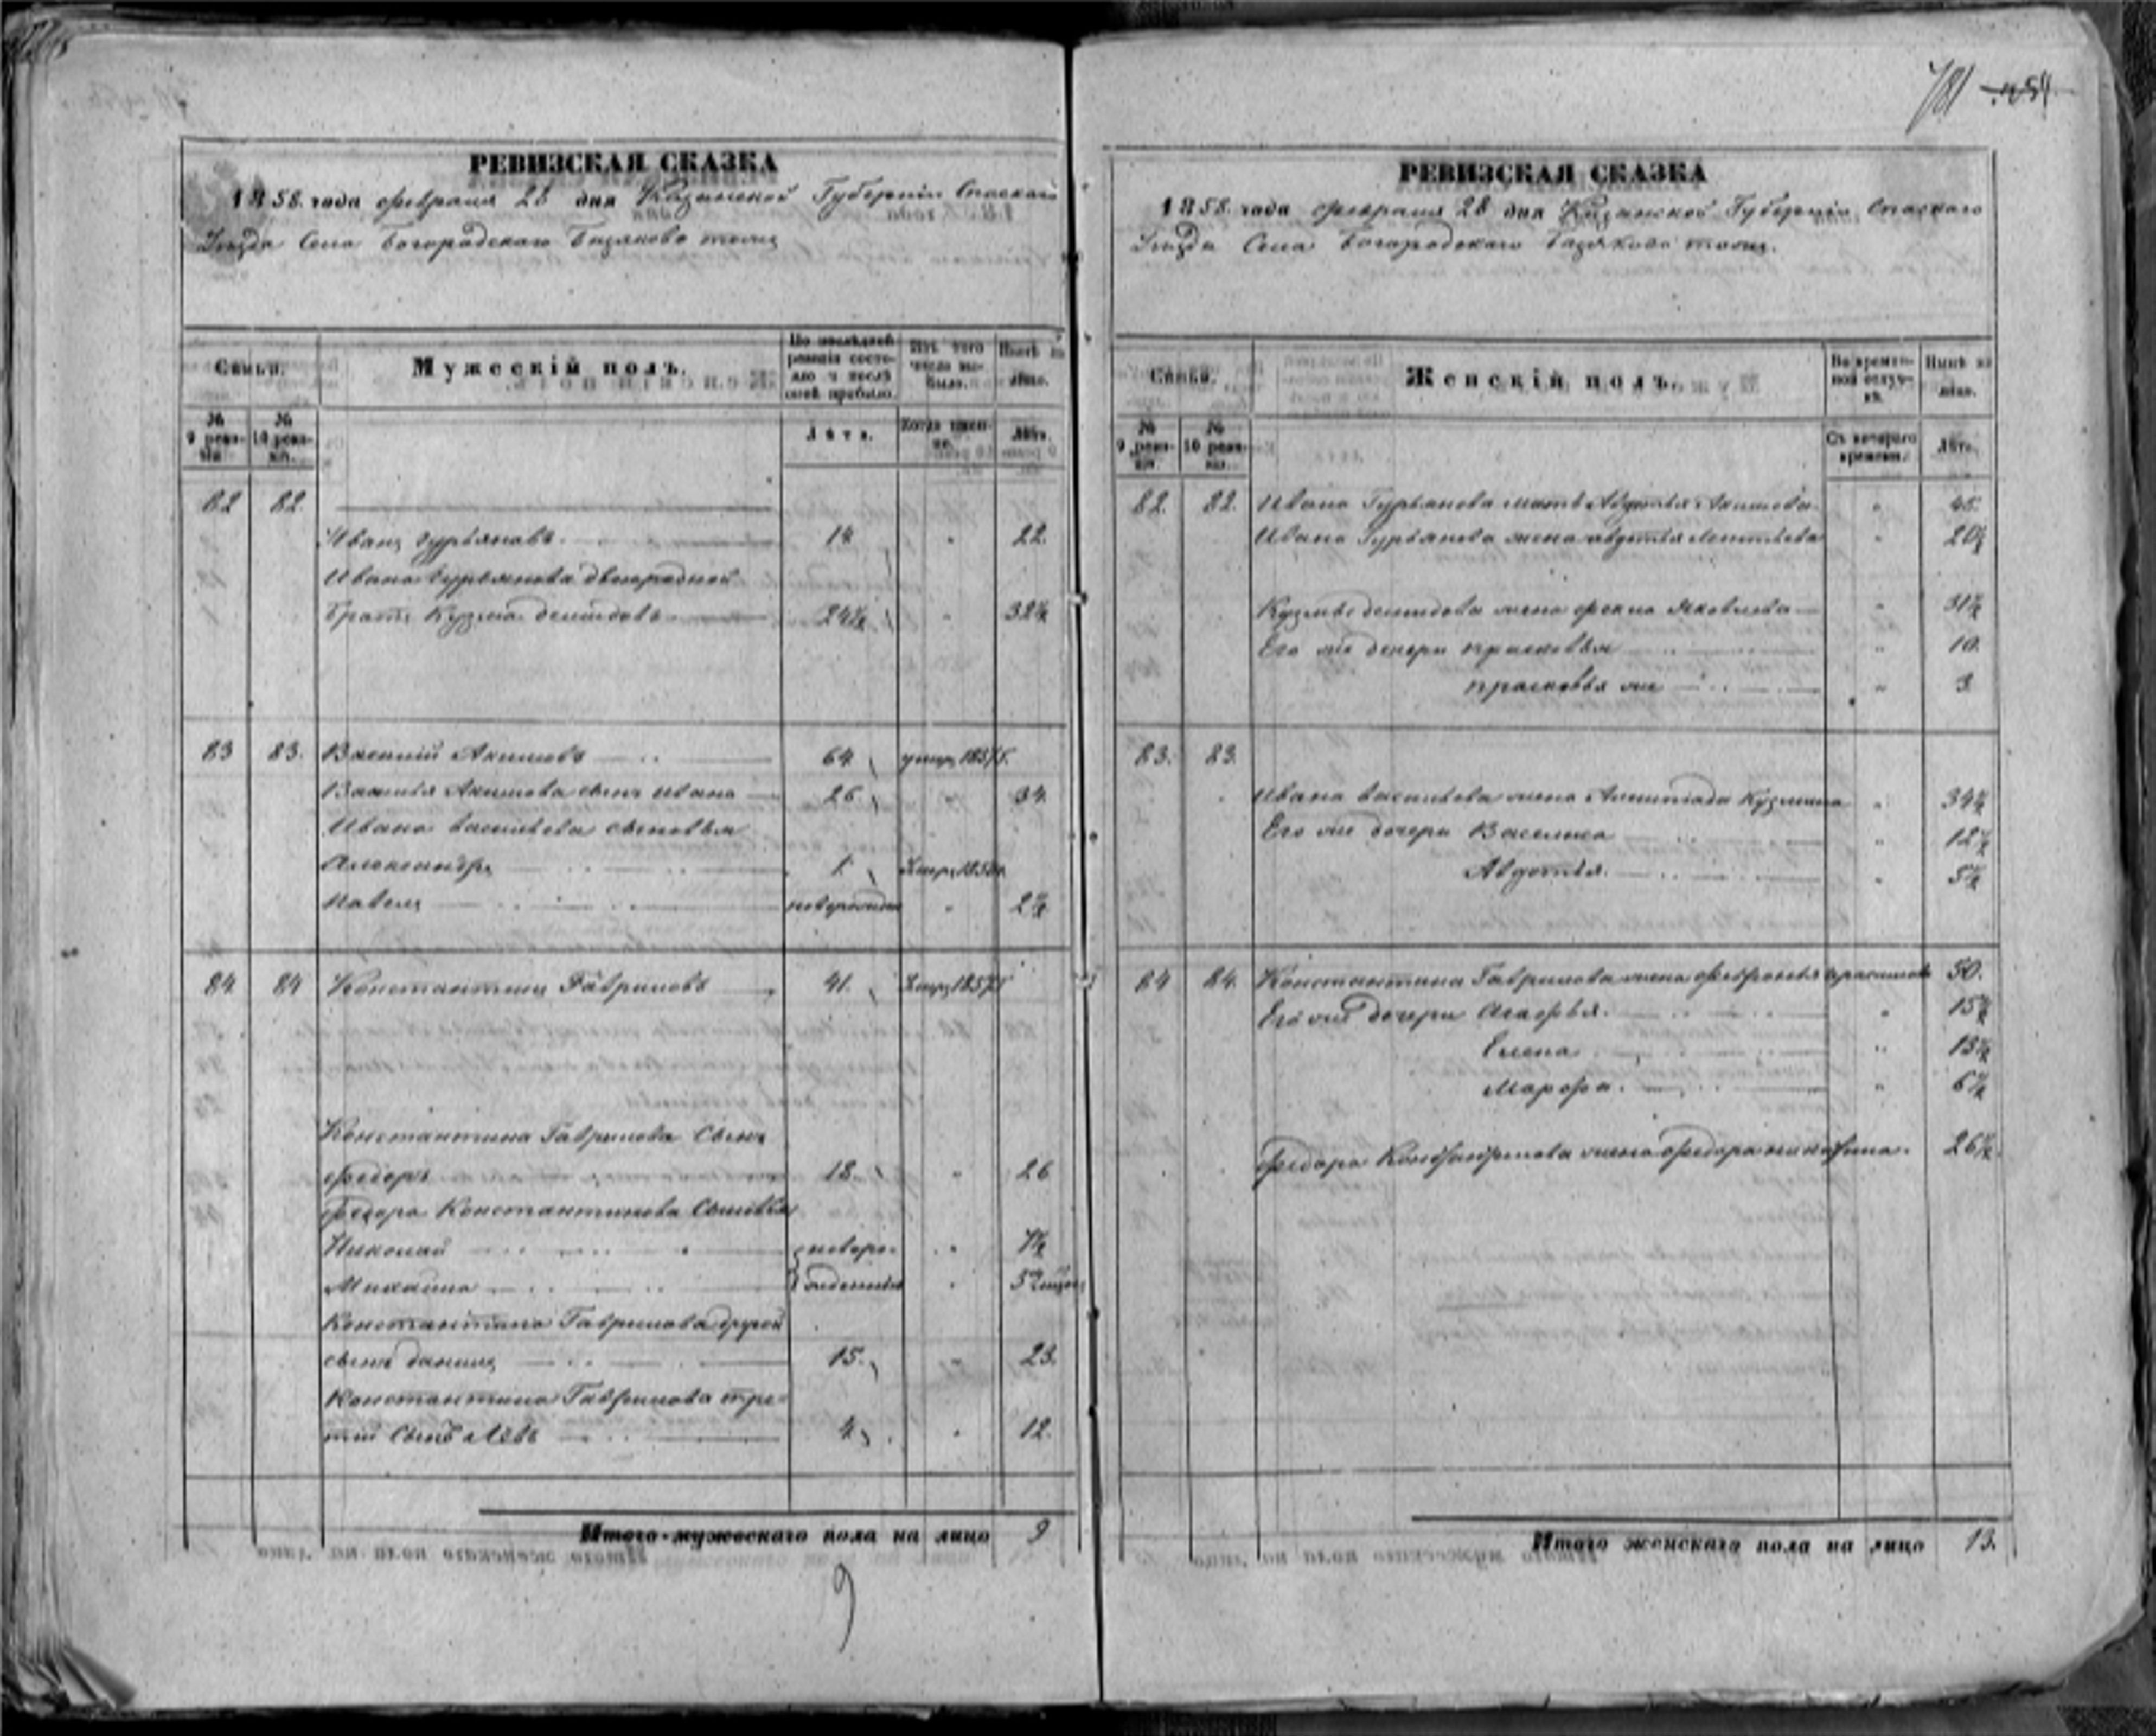 РЕВИЗСКАЯ СКАЗКА
1858 года февраля 28 дня Казанской Губернии Спаскаго
Уезда Села Богородскаго Базяково тожъ
Семьи.
Мужескій полъ.
По послѣдней ревизіи состояло и послѣ оной прибыло.
Изъ того числа выбыло.
Нынѣ на лицо.
№ 9 ревизіи
№ 10 ревизіи.
Лѣта.
Когда именно.
Лѣта.
82 82
Иванъ Гурьяновъ 14 " 22.
Ивана Гурьянова двоюродной
братъ Кузма Демидовъ 24½ " 32½
83 83. Василий Акимовъ 64 умер. 1857 г.
Василья Акимова сынъ Иванъ 26 " 34.
Ивана Васильева сыновья
Александръ 1
Павелъ новорожден " 2½
84 84 Константинъ Гавриловъ 41.
Константина Гаврилова Сынъ
Федоръ 18. " 26
Федора Константинова Сыновья
Николай новоро- "
Михаила жденные " 5
Константина Гаврилова другой
сынъ Данила 15. " 23.
Константина Гаврилова тре-
тий Сынъ Левъ 4 " 12.
Итого мужескаго пола на лицо 9
9
781
РЕВИЗСКАЯ СКАЗКА
1858. года февраля 28 дня Казанской Губернии Спаскаго
Уезда Села Богородскаго Базякова тожъ.
Семьи.
Женскій полъ.
Во временной отлучкѣ.
Нынѣ на лицо.
№ 9 ревизіи.
№ 10 ревизіи.
Съ котораго времени.
Лѣта.
82. 82. Ивана Гурьянова мать Авдотья Акимова " 45.
Ивана Гурьянова жена Авдотья Леонтьева " 20½
Кузмы Демидова жена Фекла Яковлева " 31½
Его же дочери Прасковья " 10.
Прасковья же " 3
83. 83.
Ивана Васильева жена Кузмина " 34½
Его же дочери Василиса " 12½
Авдотья. " 5½
84 84. Константина Гаврилова жена Февронья 50.
Его же дочери Агафья. " 15½
Елена " 13½
Марфа. " 6½
Федора Константинова жена 26½
Итого женскаго пола на лицо 13.